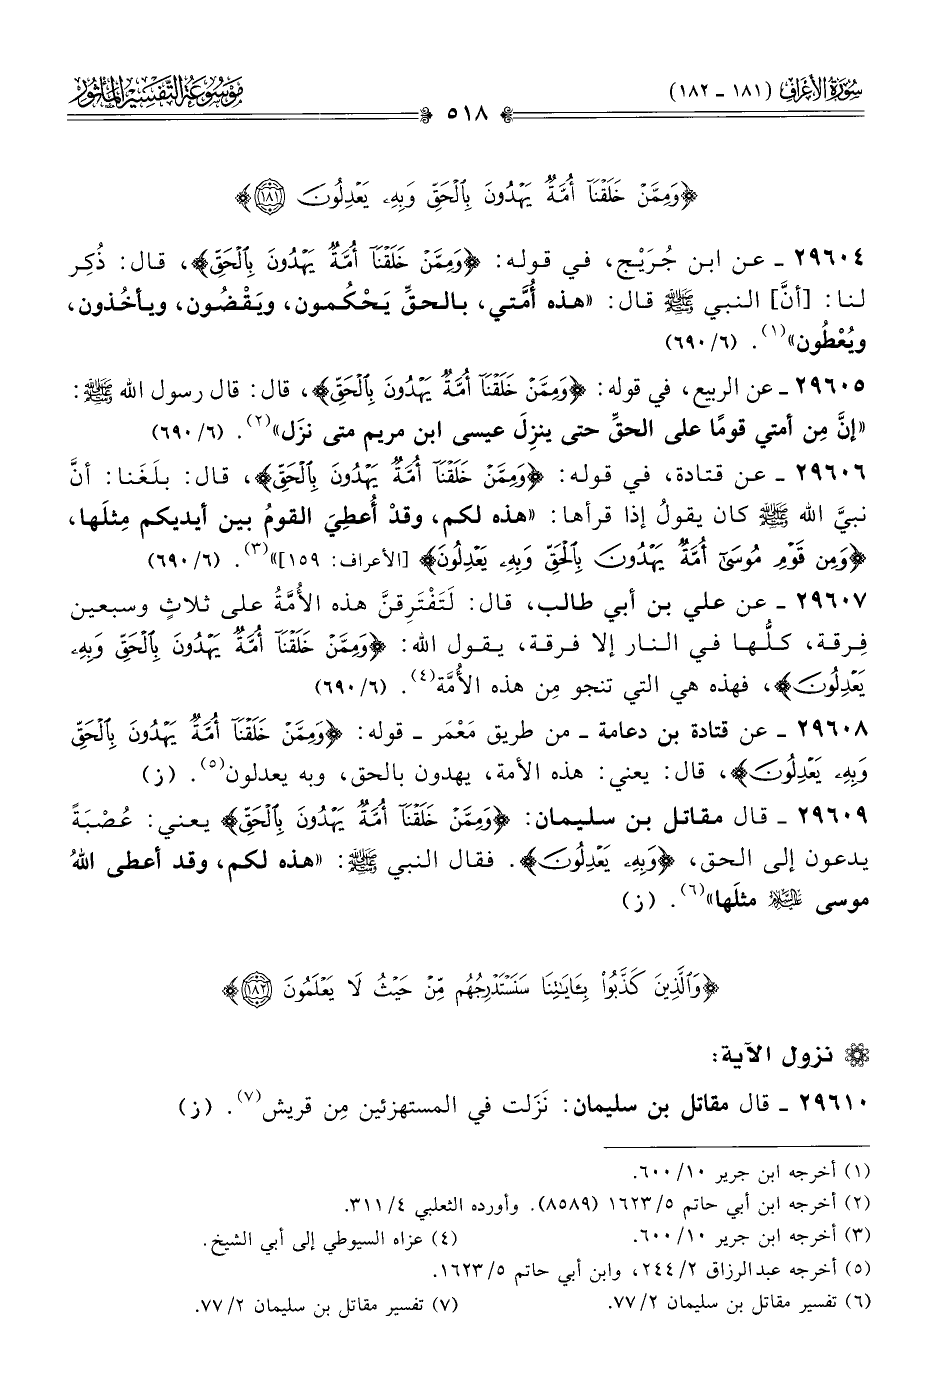 سُورَةُ الأَعْرَافِ (١٨١ - ١٨٢)
٥١٨
مَوْسُوعَةُ التَّفْسِيرِ المَأْثُورِ
﴿وَمِمَّنْ خَلَقْنَآ أُمَّةٌ يَهْدُونَ بِٱلْحَقِّ وَبِهِۦ يَعْدِلُونَ ١٨١﴾
٢٩٦٠٤ - عن ابن جُرَيْج، في قوله: ﴿وَمِمَّنْ خَلَقْنَآ أُمَّةٌ يَهْدُونَ بِٱلْحَقِّ﴾، قال: ذُكِر
لنا: [أنَّ] النبي ﷺ قال: «هذه أُمَّتي، بالحقِّ يَحْكُمون، ويَقْضُون، ويأخُذون،
ويُعْطُون»(١). (٦/ ٦٩٠)
٢٩٦٠٥ - عن الربيع، في قوله: ﴿وَمِمَّنْ خَلَقْنَآ أُمَّةٌ يَهْدُونَ بِٱلْحَقِّ﴾، قال: قال رسول الله ﷺ:
«إنَّ مِن أمتي قومًا على الحقِّ حتى ينزِلَ عيسى ابن مريم متى نزَل»(٢). (٦/ ٦٩٠)
٢٩٦٠٦ - عن قتادة، في قوله: ﴿وَمِمَّنْ خَلَقْنَآ أُمَّةٌ يَهْدُونَ بِٱلْحَقِّ﴾، قال: بلَغَنا: أنَّ
نبيَّ الله ﷺ كان يقولُ إذا قرأها: «هذه لكم، وقدْ أُعطِيَ القومُ بين أيديكم مِثلَها،
﴿وَمِن قَوْمِ مُوسَىٰٓ أُمَّةٌ يَهْدُونَ بِٱلْحَقِّ وَبِهِۦ يَعْدِلُونَ﴾ [الأعراف: ١٥٩]»(٣). (٦/ ٦٩٠)
٢٩٦٠٧ - عن علي بن أبي طالب، قال: لَتَفْتَرِقنَّ هذه الأُمَّةُ على ثلاثٍ وسبعين
فِرقة، كلُّها في النار إلا فرقة، يقول الله: ﴿وَمِمَّنْ خَلَقْنَآ أُمَّةٌ يَهْدُونَ بِٱلْحَقِّ وَبِهِۦ
يَعْدِلُونَ﴾، فهذه هي التي تنجو مِن هذه الأُمَّة(٤). (٦/ ٦٩٠)
٢٩٦٠٨ - عن قتادة بن دعامة - من طريق مَعْمَر - قوله: ﴿وَمِمَّنْ خَلَقْنَآ أُمَّةٌ يَهْدُونَ بِٱلْحَقِّ
وَبِهِۦ يَعْدِلُونَ﴾، قال: يعني: هذه الأمة، يهدون بالحق، وبه يعدلون(٥). (ز)
٢٩٦٠٩ - قال مقاتل بن سليمان: ﴿وَمِمَّنْ خَلَقْنَآ أُمَّةٌ يَهْدُونَ بِٱلْحَقِّ﴾ يعني: عُصْبَةً
يدعون إلى الحق، ﴿وَبِهِۦ يَعْدِلُونَ﴾. فقال النبي ﷺ: «هذه لكم، وقد أعطى اللهُ
موسى عليه السلام مثلَها»(٦). (ز)
﴿وَٱلَّذِينَ كَذَّبُوا۟ بِـَٔايَـٰتِنَا سَنَسْتَدْرِجُهُم مِّنْ حَيْثُ لَا يَعْلَمُونَ ١٨٢﴾
نزول الآية:
٢٩٦١٠ - قال مقاتل بن سليمان: نَزَلت في المستهزئين مِن قريش(٧). (ز)
(١) أخرجه ابن جرير ١٠/ ٦٠٠.
(٢) أخرجه ابن أبي حاتم ٥/ ١٦٢٣ (٨٥٨٩). وأورده الثعلبي ٤/ ٣١١.
(٣) أخرجه ابن جرير ١٠/ ٦٠٠. (٤) عزاه السيوطي إلى أبي الشيخ.
(٥) أخرجه عبدالرزاق ٢/ ٢٤٤، وابن أبي حاتم ٥/ ١٦٢٣.
(٦) تفسير مقاتل بن سليمان ٢/ ٧٧. (٧) تفسير مقاتل بن سليمان ٢/ ٧٧.